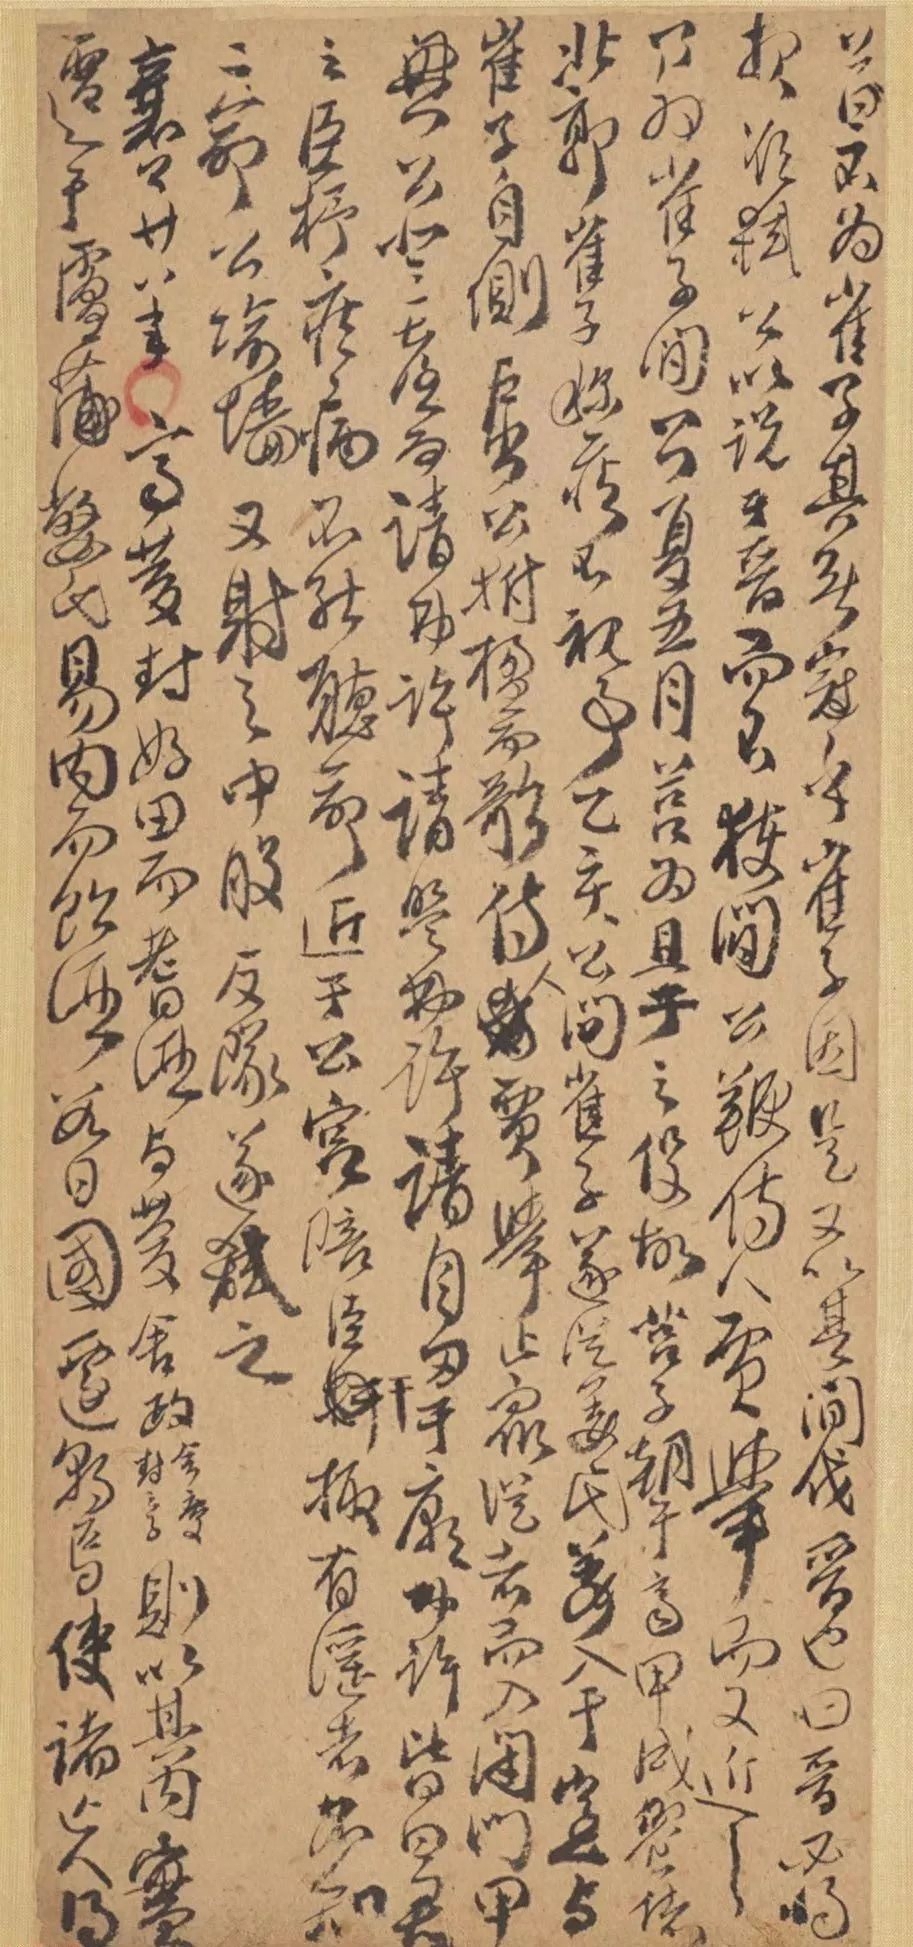 公曰不為崔子其無冠乎崔子因是又以其間伐晉也曰晉必將
報欲弒公以說于晉而不獲間公鞭侍人賈舉而又近之
乃為崔子間公夏五月莒為且于之役故莒子朝于齊甲戌饗諸
北郭崔子稱疾不視事乙亥公問崔子遂從姜氏姜入于室與
崔子自側戶出公拊楹而歌侍人賈舉止眾從者而入閉門甲
興公登臺而請弗許請盟弗許請自刃于廟弗許皆曰君
之臣杼疾病不能聽命近于公宮陪臣干掫有淫者不知
二命公踰墻又射之中股反隊遂弒之
襄公廿八年齊慶封好田而耆酒與慶舍政舍慶封子則以其內實
遷于盧蒲嫳氏易內而飲酒數日國遷朝焉使諸亡人得